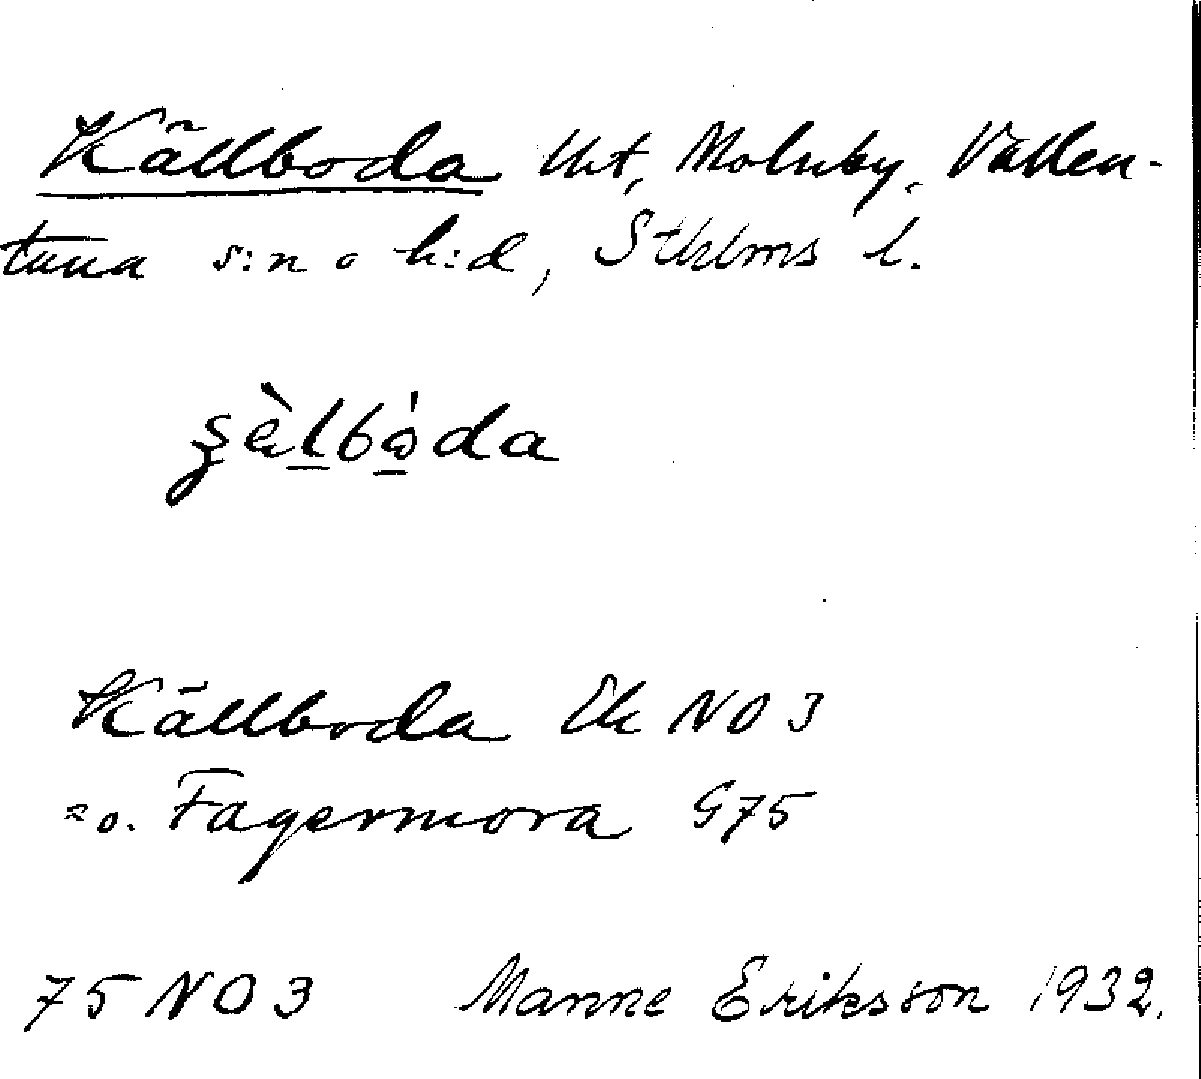 Källboda lht, Molnby, Vallen-
tuna s:n o h:d, Sthlms l.
Källboda Ek NO 3
o. Fagermora G75
75 NO 3 Manne Eriksson 1932.